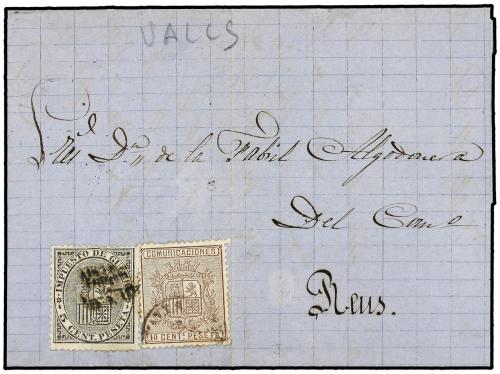 VALLS
Sres. Dn. de la Fabril Algodonera
Del Camo
Reus.
IMPUESTO DE GUERRA
5 CENT. PESETA
COMUNICACIONES
10 CENT. PESETA